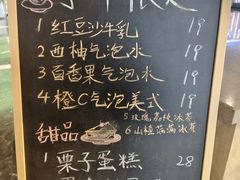 1 红豆沙牛乳 19
2 西柚气泡水 19
3 百香果气泡水 19
4 橙C气泡美式 19
5 玫瑰荔枝冰茶
6 山楂洛神冰茶
甜品
1 栗子蛋糕 28